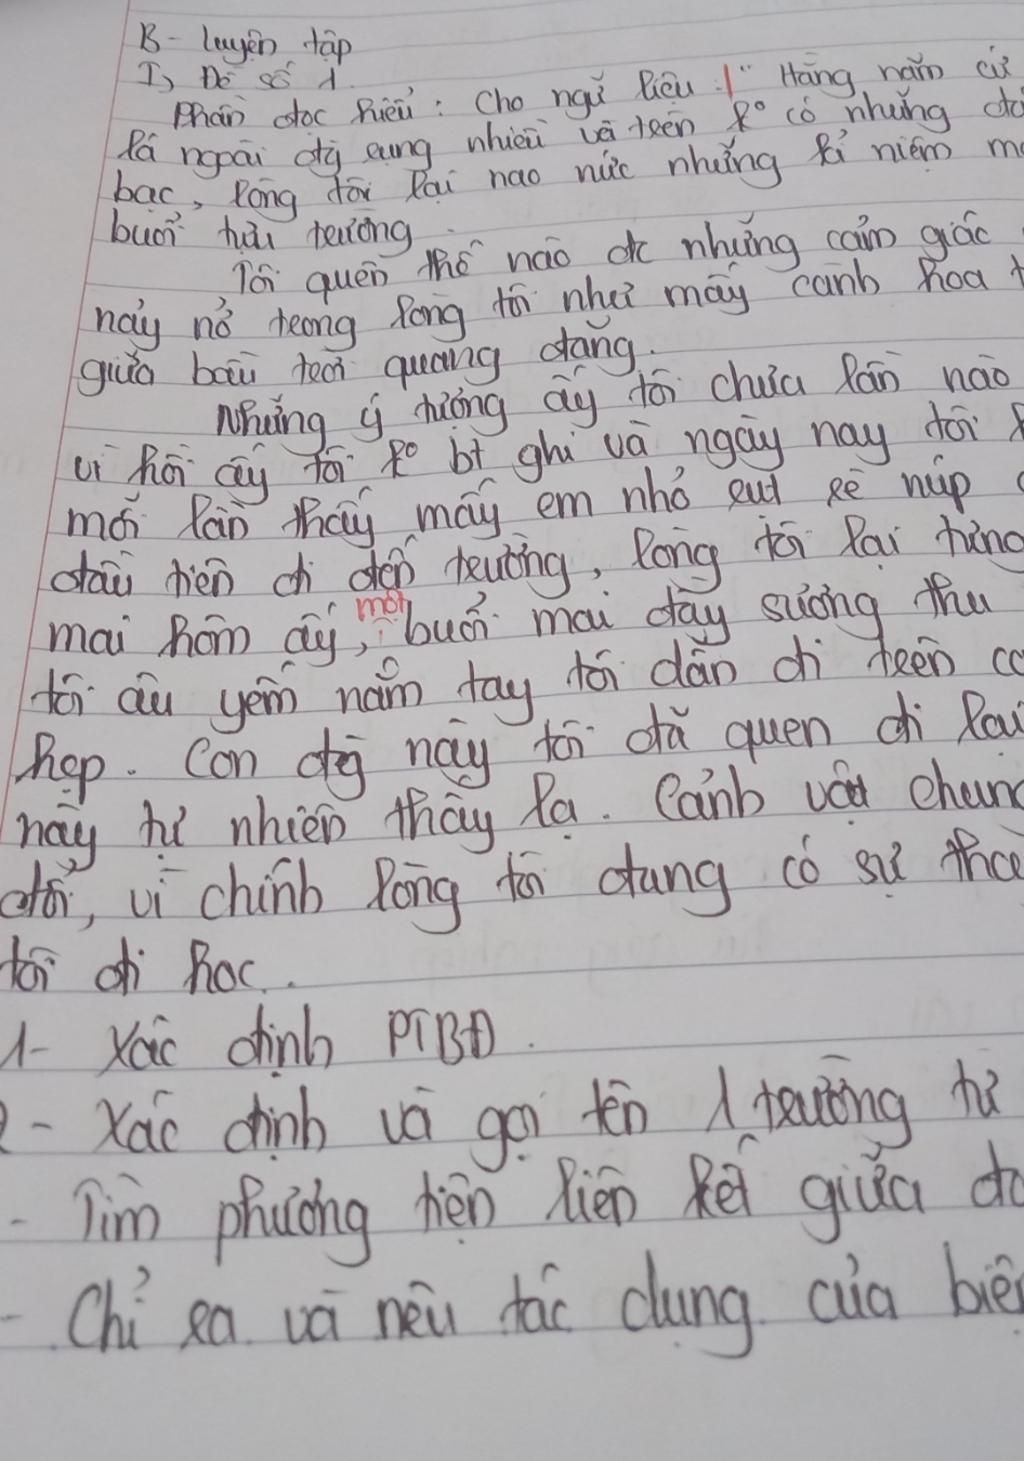 B- luyện tập
I, Đề số 1.
Phần đọc hiểu: Cho ngữ liệu: "Hằng năm cứ
lá ngoài đg rụng nhiều và trên ko có những đá
bạc, lòng tôi lại nao nức những kỉ niệm m
buổi tựu trường.
Tôi quên thế nào đc những cảm giác
nảy nở trong lòng tôi như mấy cánh hoa t
giữa bầu trời quang đãng.
Những ý tưởng ấy tôi chưa lần nào
vì hồi ấy tôi ko bt ghi và ngày nay tôi k
mỗi lần thấy mấy em nhỏ rụt rè núp
đầu tiên đi đến trường, lòng tôi lại tưng
mai hôm ấy, một buổi mai đầy sương thu
tôi âu yếm nắm tay tôi dẫn đi trên co
hẹp. Con đg này tôi đã quen đi lại
này tự nhiên thấy lạ. Cảnh vật chung
đổi, vì chính lòng tôi đang có sự tha
tôi đi học.
1- Xác định PTBĐ.
2- Xác định và gọi tên 1 trường từ
- Tìm phương tiện liên kết giữa đo
- Chỉ ra và nêu tác dụng của biệ